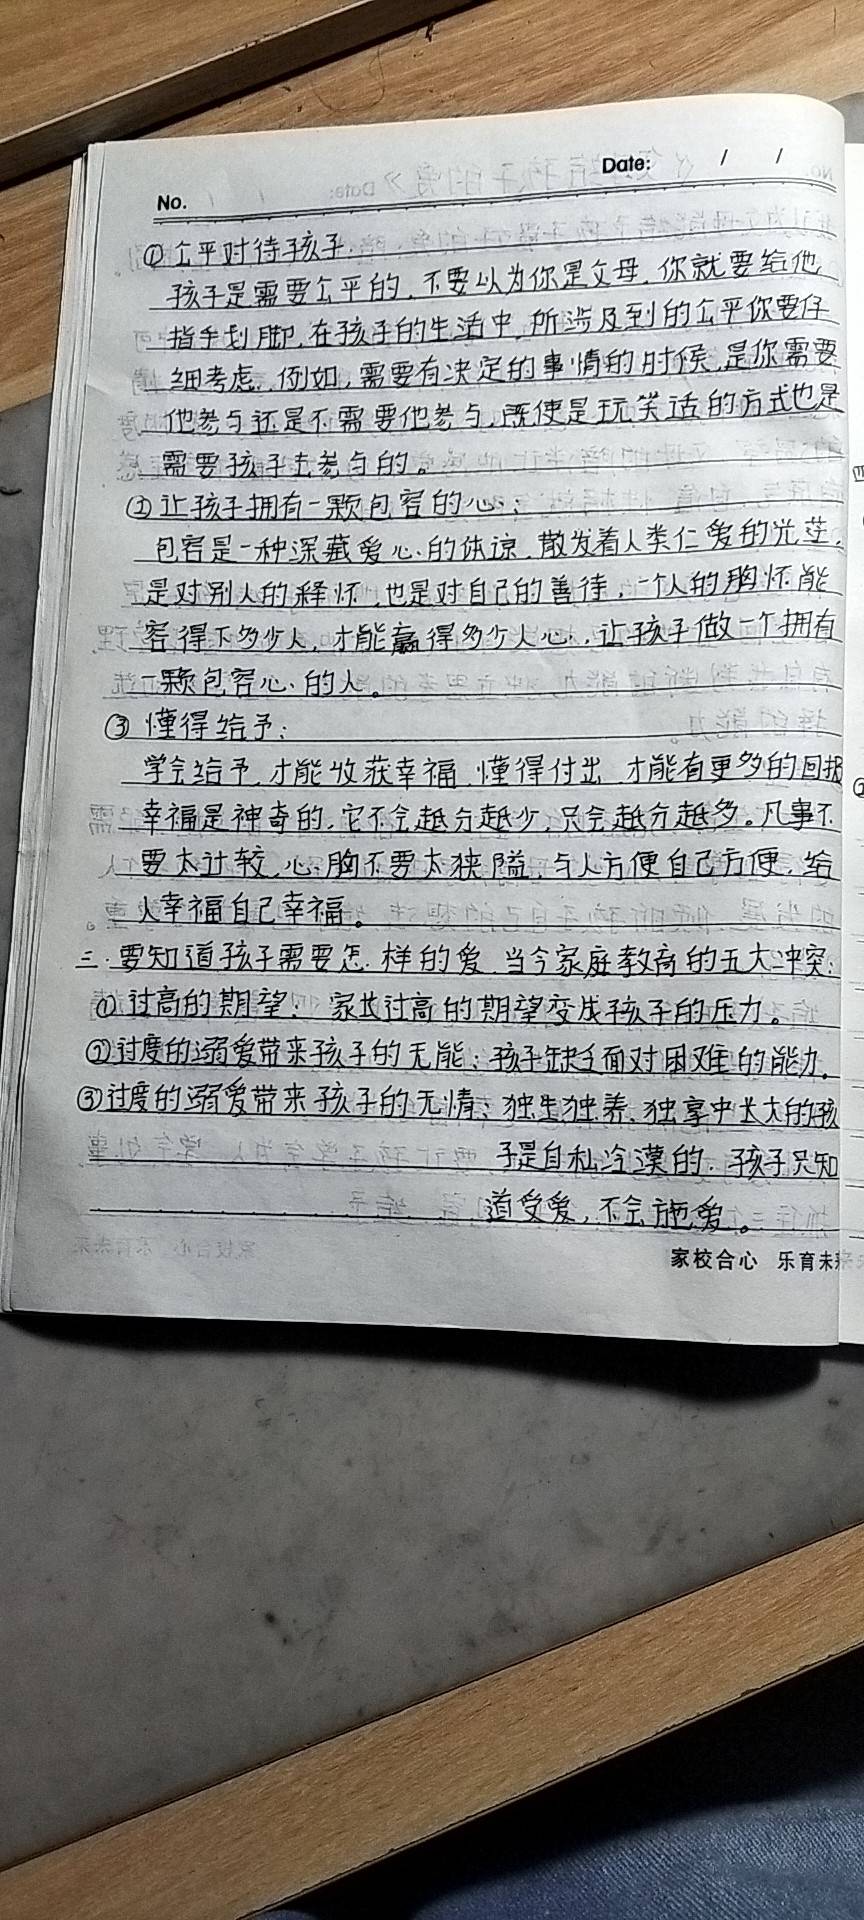 No.
Date: / /
①公平对待孩子.
孩子是需要公平的.不要以为你是父母.你就要给他
指手划脚.在孩子的生活中.所涉及到的公平你要仔
细考虑.例如,需要有决定的事情的时候,是你需要
他参与还是不需要他参与,既使是玩笑话的方式也是
需要孩子去参与的。
②让孩子拥有一颗包容的心:
包容是一种深藏爱心的体谅.散发着人类仁爱的光茫.
是对别人的释怀.也是对自己的善待,一个人的胸怀能
容得下多少人,才能赢得多少人心.让孩子做一个拥有
一颗包容心的人。
③懂得给予:
学会给予.才能收获幸福.懂得付出 才能有更多的回报
幸福是神奇的.它不会越分越少,只会越分越多。凡事不
要太计较,心胸不要太狭隘,与人方便自己方便.给
人幸福自己幸福。
三.要知道孩子需要怎样的爱.当今家庭教育的五大冲突:
①过高的期望:家长过高的期望变成孩子的压力。
②过度的溺爱带来孩子的无能:孩子缺乏面对困难的能力。
③过度的溺爱带来孩子的无情:独生独养、独享中长大的孩
子是自私冷漠的.孩子只知
道受爱,不会施爱。
家校合心 乐育未来
四
②